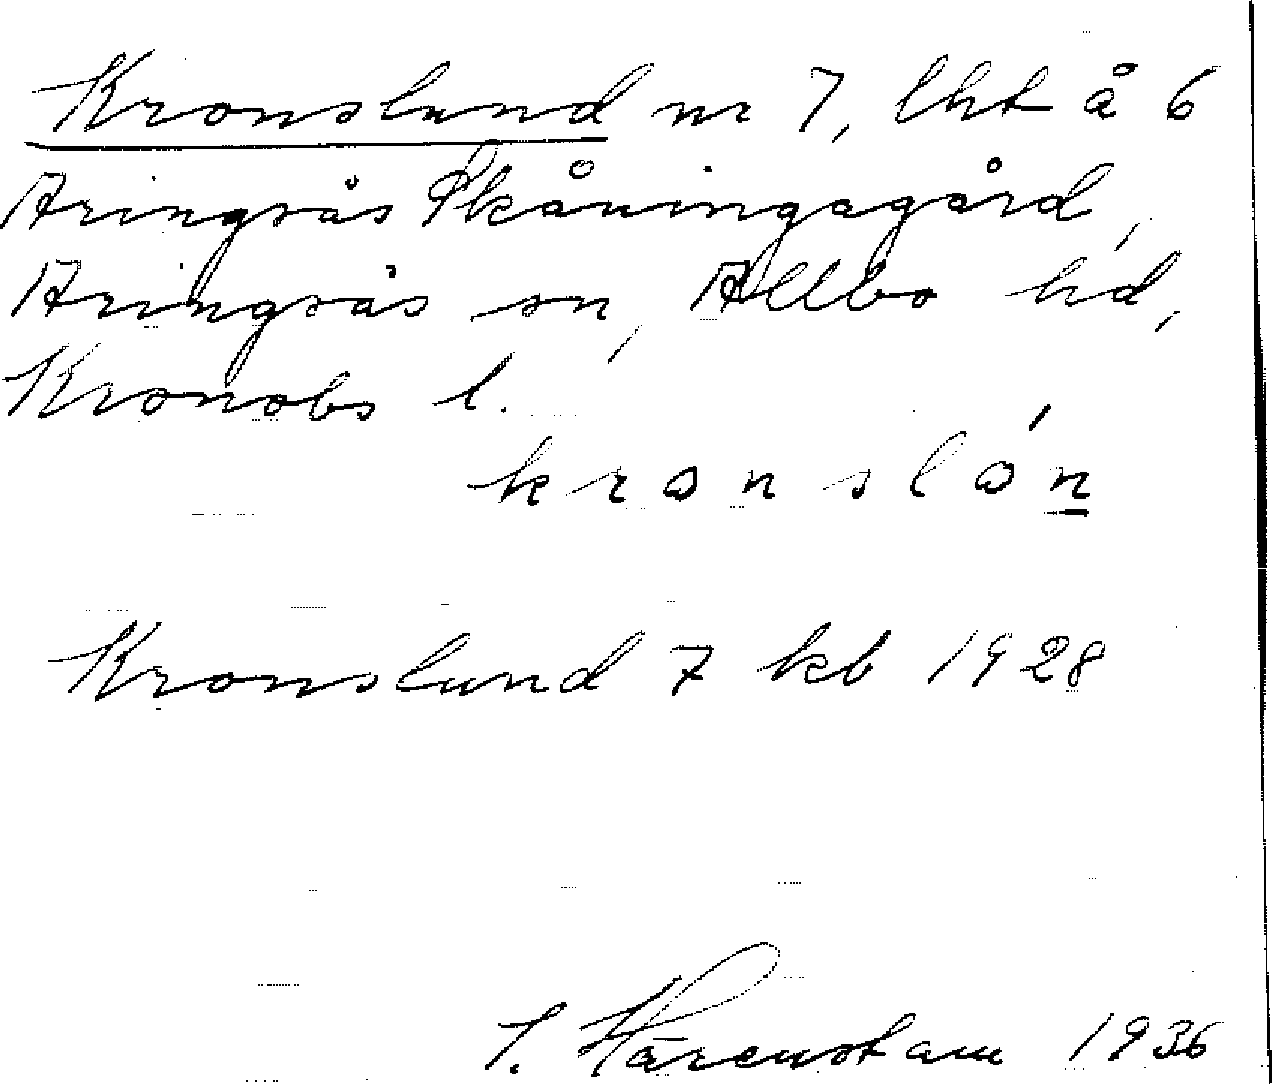 Kronslund nr 7, lht å 6
Aringsås Skåningagård,
Aringsås sn, Allbo hd,
Kronobs l.
kronslón
Kronslund 7 kb 1928
Härenstam 1936